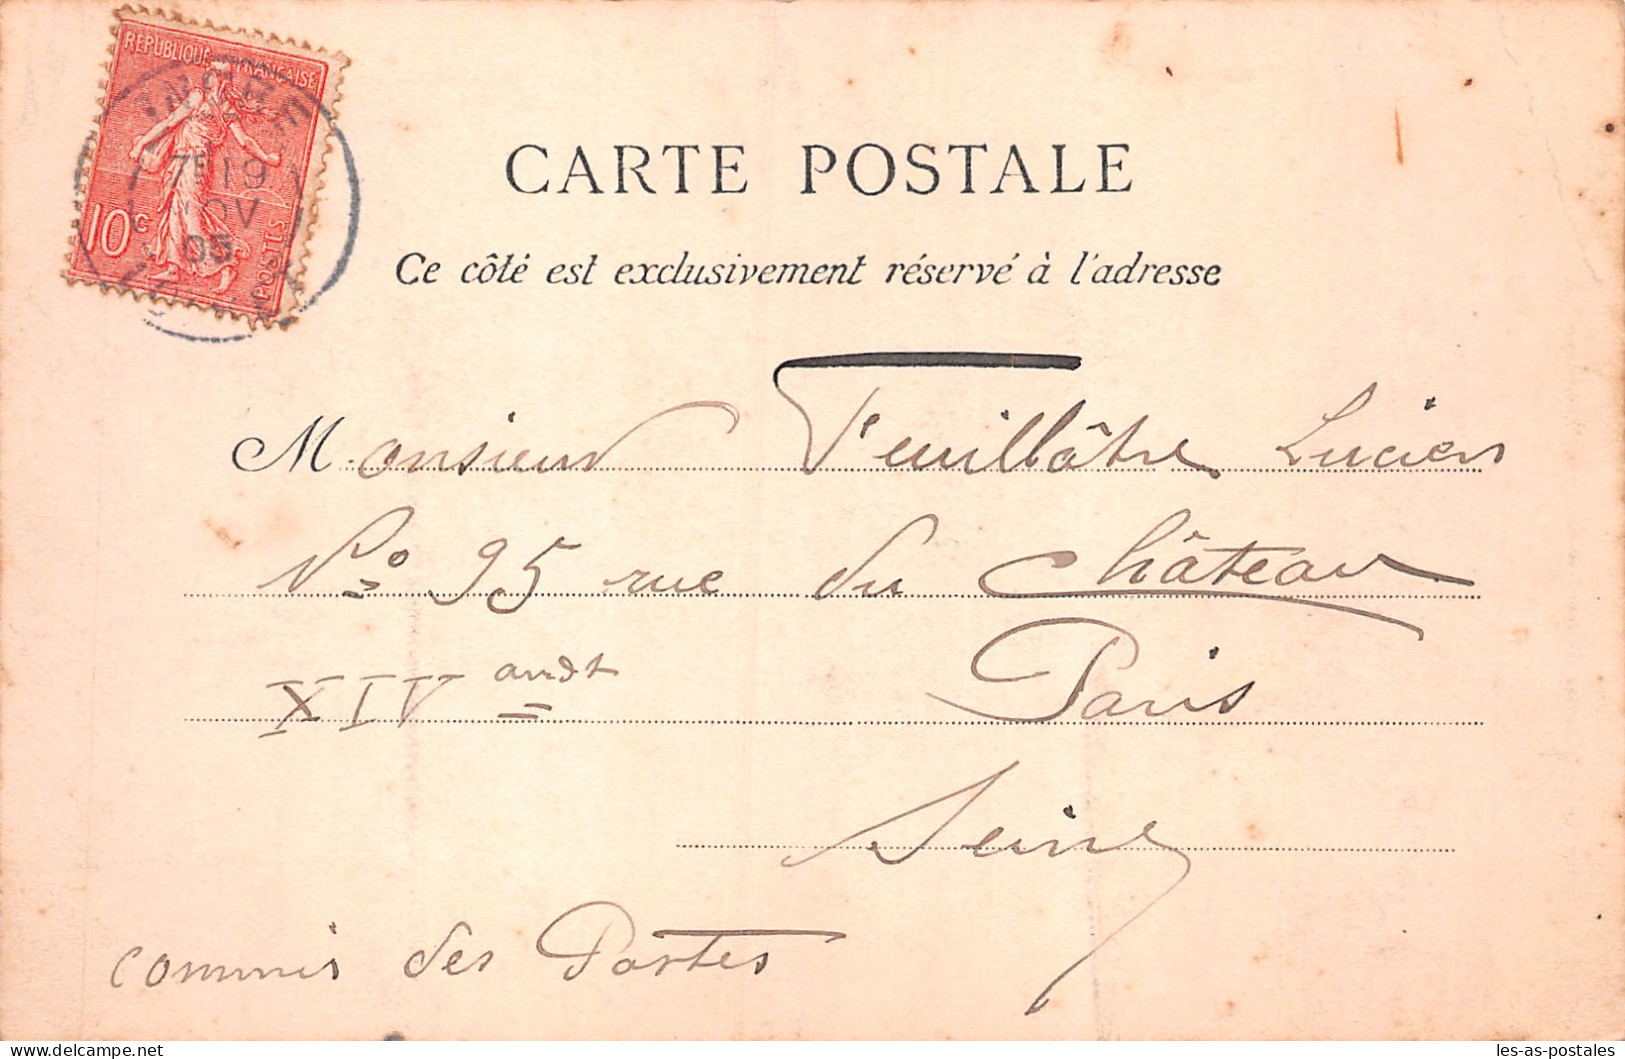 REPUBLIQUE FRANÇAISE
10c POSTES
7E 19
05
CARTE POSTALE
Ce côté est exclusivement réservé à l'adresse
Monsieur Feuillâtre Lucien
No 95 rue du Château
XIV arrdt Paris
Seine
commis des Postes
delcampe.net
les-as-postales